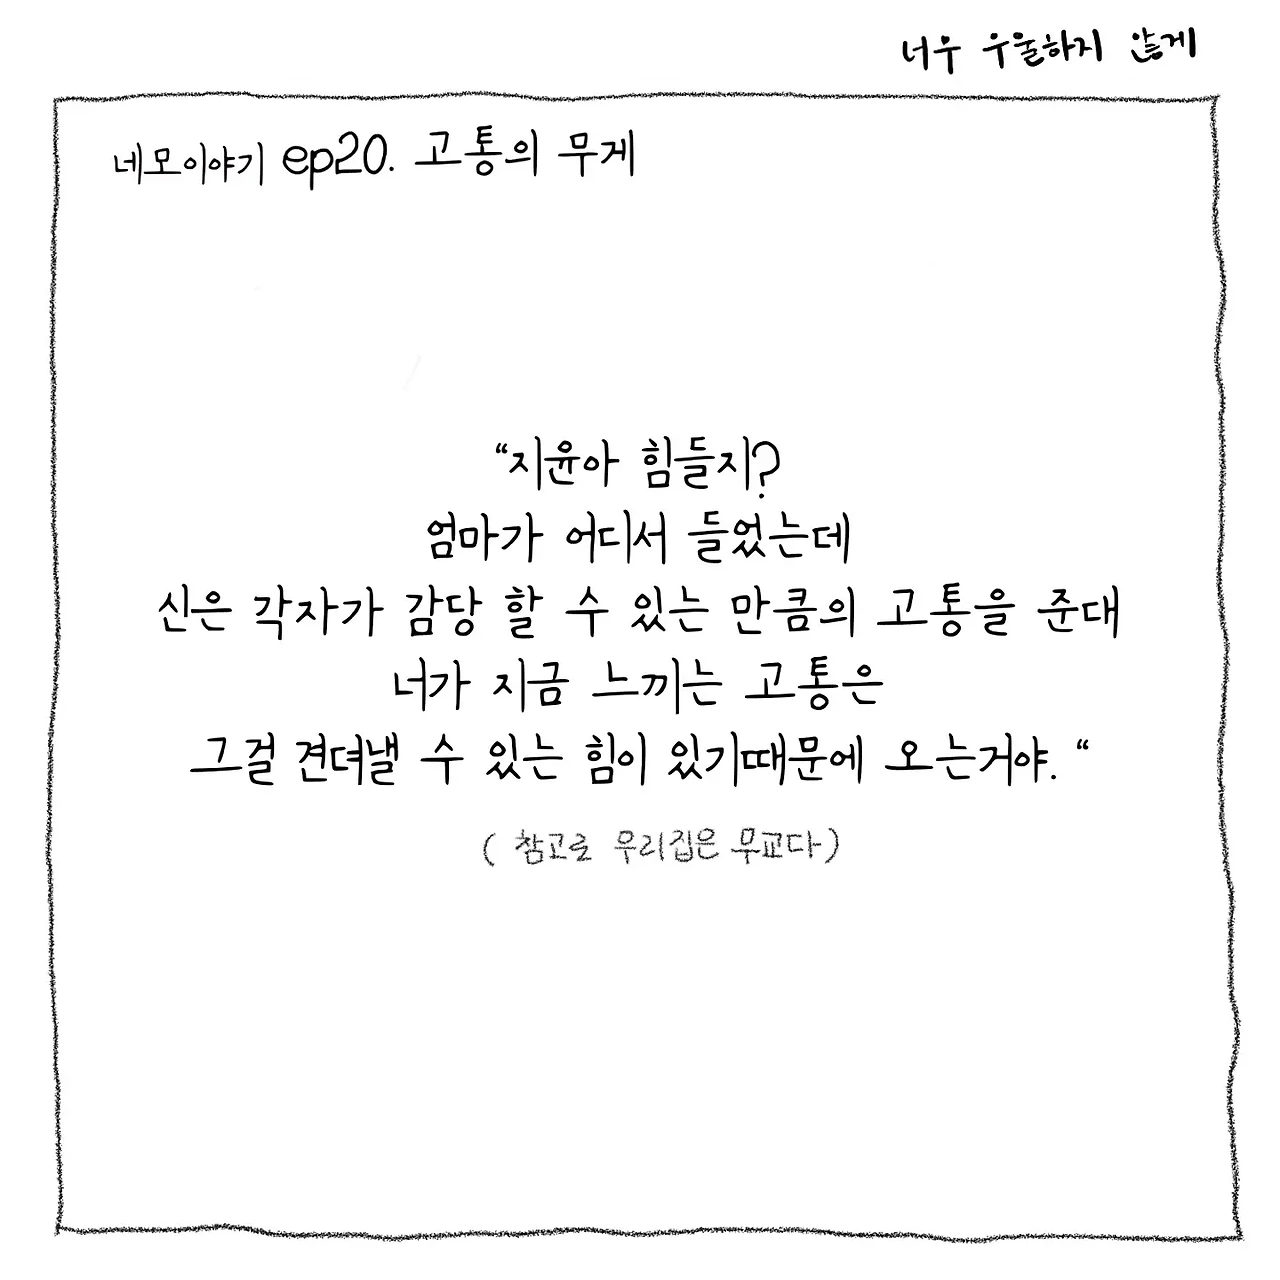 너우 우울하지 않게
네모이야기 ep20. 고통의 무게
“지윤아 힘들지?
엄마가 어디서 들었는데
신은 각자가 감당 할 수 있는 만큼의 고통을 준대
너가 지금 느끼는 고통은
그걸 견뎌낼 수 있는 힘이 있기때문에 오는거야. “
( 참고로 우리집은 무교다)